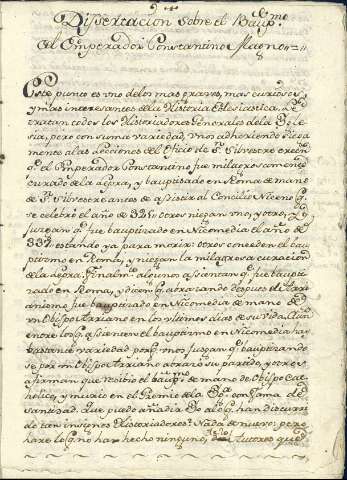 Dissertacion sobre el Baup.mo
del Emperador Constantino Magno
Este punto es vno delos mas graves, mas curiosos
y mas interesantes dela Historia Eclesiastica.
tratan todos los Historiadores Generales dela Igle
sia, pero con suma variedad. Vnos adheriendo
mente alas lecciones del Oficio de Sn. Silvestre creen
q.e el Emperador Constantino fue milagrosamente
curado dela lepra, y bauptisado en Roma de mano
de Sn. Silvestre antes de asistir al Concilio Niceno q.e
se celebró el año de 325. otros niegan vno, y otro, y
jusgan q.e fue bauptizado en Nicomedia el año de
337 estando ya para morir: otros conceden el bau
ptismo en Roma, y niegan la milagrosa curacion
dela lepra. Finalm.te algunos asientan q.e fue baupti
zado en Roma, y dicen q.e abrazando despues el Arri
anismo fue bauptizado en Nicomedia de mano de
vn Obispo Arriano en los vltimos dias de su vida. Aun
entre los q.e asienten el bauptismo en Nicomedia hay
bastante variedad porq.e vnos jusgan q.e bauptizando
se por vn Obispo Arriano abrazó su partido, y otros
afirman que recibio el baup.mo de mano de Obispo Cat
holico, y murio en el Gremio dela Ig.a con fama de
santidad. que puedo añadir Yo alo q.e han discurri
do tan insignes Historiadores? Nada de nuevo; pero
hare lo q.e no han hecho ninguno, Autores que